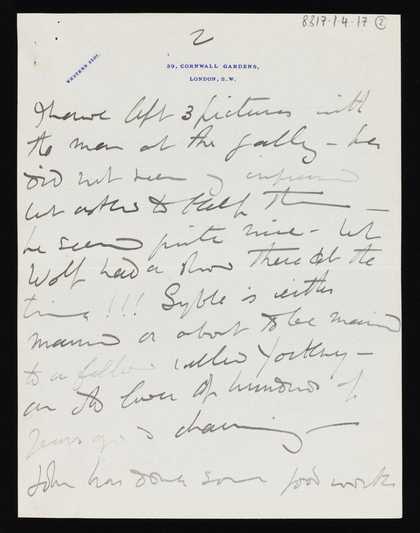 8817.1.4.17 (2)
2
WESTERN 2101.
39, CORNWALL GARDENS,
LONDON, S.W.
I have left 3 pictures with
the man at the gallery – he
did not seem
but asked to keep them –
he seemed quite nice – but
Wolf had a show there at the
time !!! Syble is either
married or about to be married
to a fellow called –
an old lover of hundreds of
years ago & charming –
John has done some good works